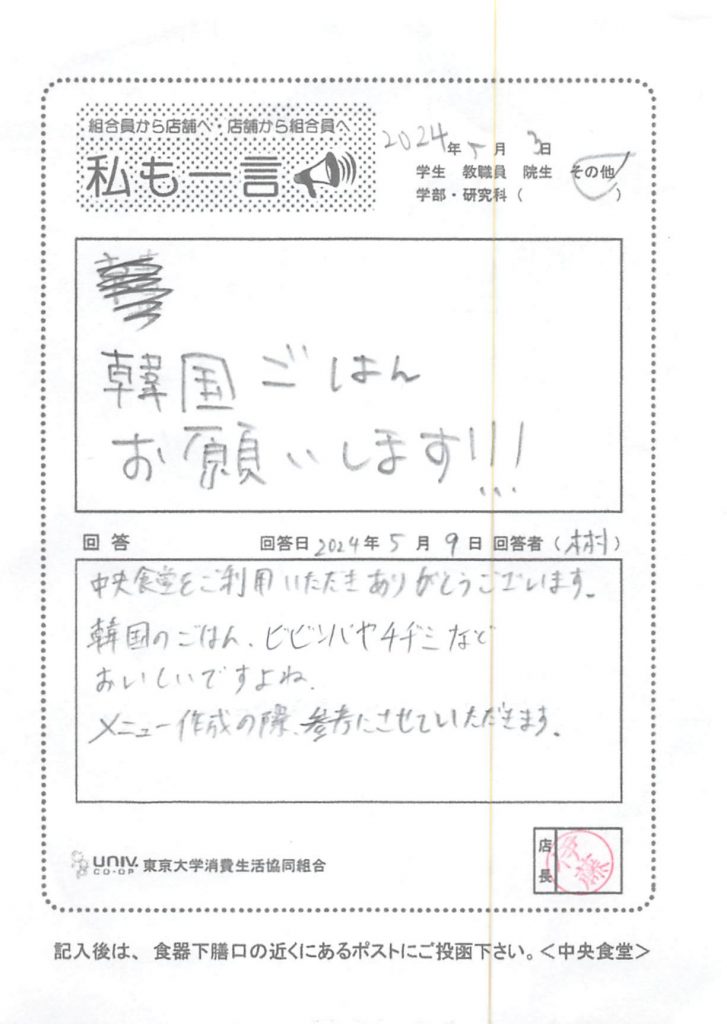 組合員から店舗へ・店舗から組合員へ
私も一言
2024年5月3日
学生 教職員 院生 その他
学部・研究科( )
韓国ごはん
お願いします!!!
回答 回答日2024年5月9日 回答者( )
中央食堂をご利用いただきありがとうございます。
韓国のごはん、ビビンバやチヂミなど
おいしいですよね。
メニュー作成の際、参考にさせていただきます。
UNIV. CO-OP 東京大学消費生活協同組合
店長 伊藤
記入後は、食器下膳口の近くにあるポストにご投函下さい。<中央食堂>